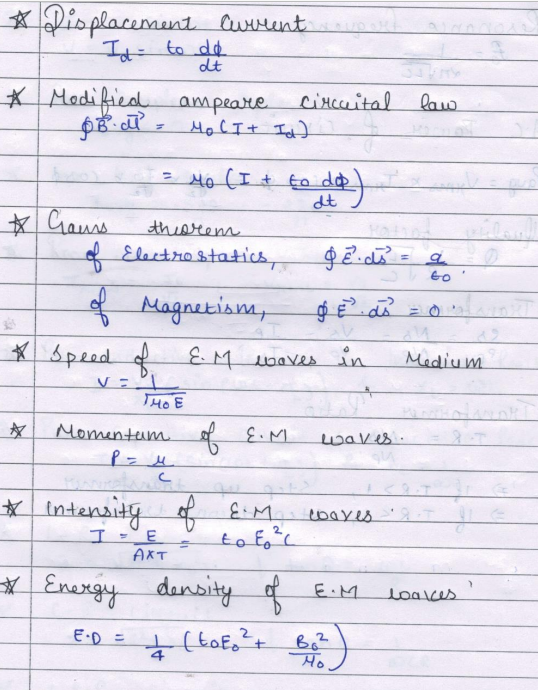 ☆ Displacement Current
I_d = ε0 dφ/dt
☆ Modified ampeare circuital law
∮B⃗·dl⃗ = μ0 (I + I_d)
= μ0 (I + ε0 dφ/dt)
☆ Gauss theorem
of Electrostatics, ∮E⃗·ds⃗ = q/ε0.
of Magnetism, ∮E⃗·ds⃗ = 0
☆ Speed of E.M waves in Medium
V = 1/√μ0 E
☆ Momentum of E.M waves.
P = μ/c
☆ intensity of E.M waves
I = E/A×T = ε0 E0² C
☆ Energy density of E.M waves
E.D = 1/4 (ε0E0² + B0²/μ0)